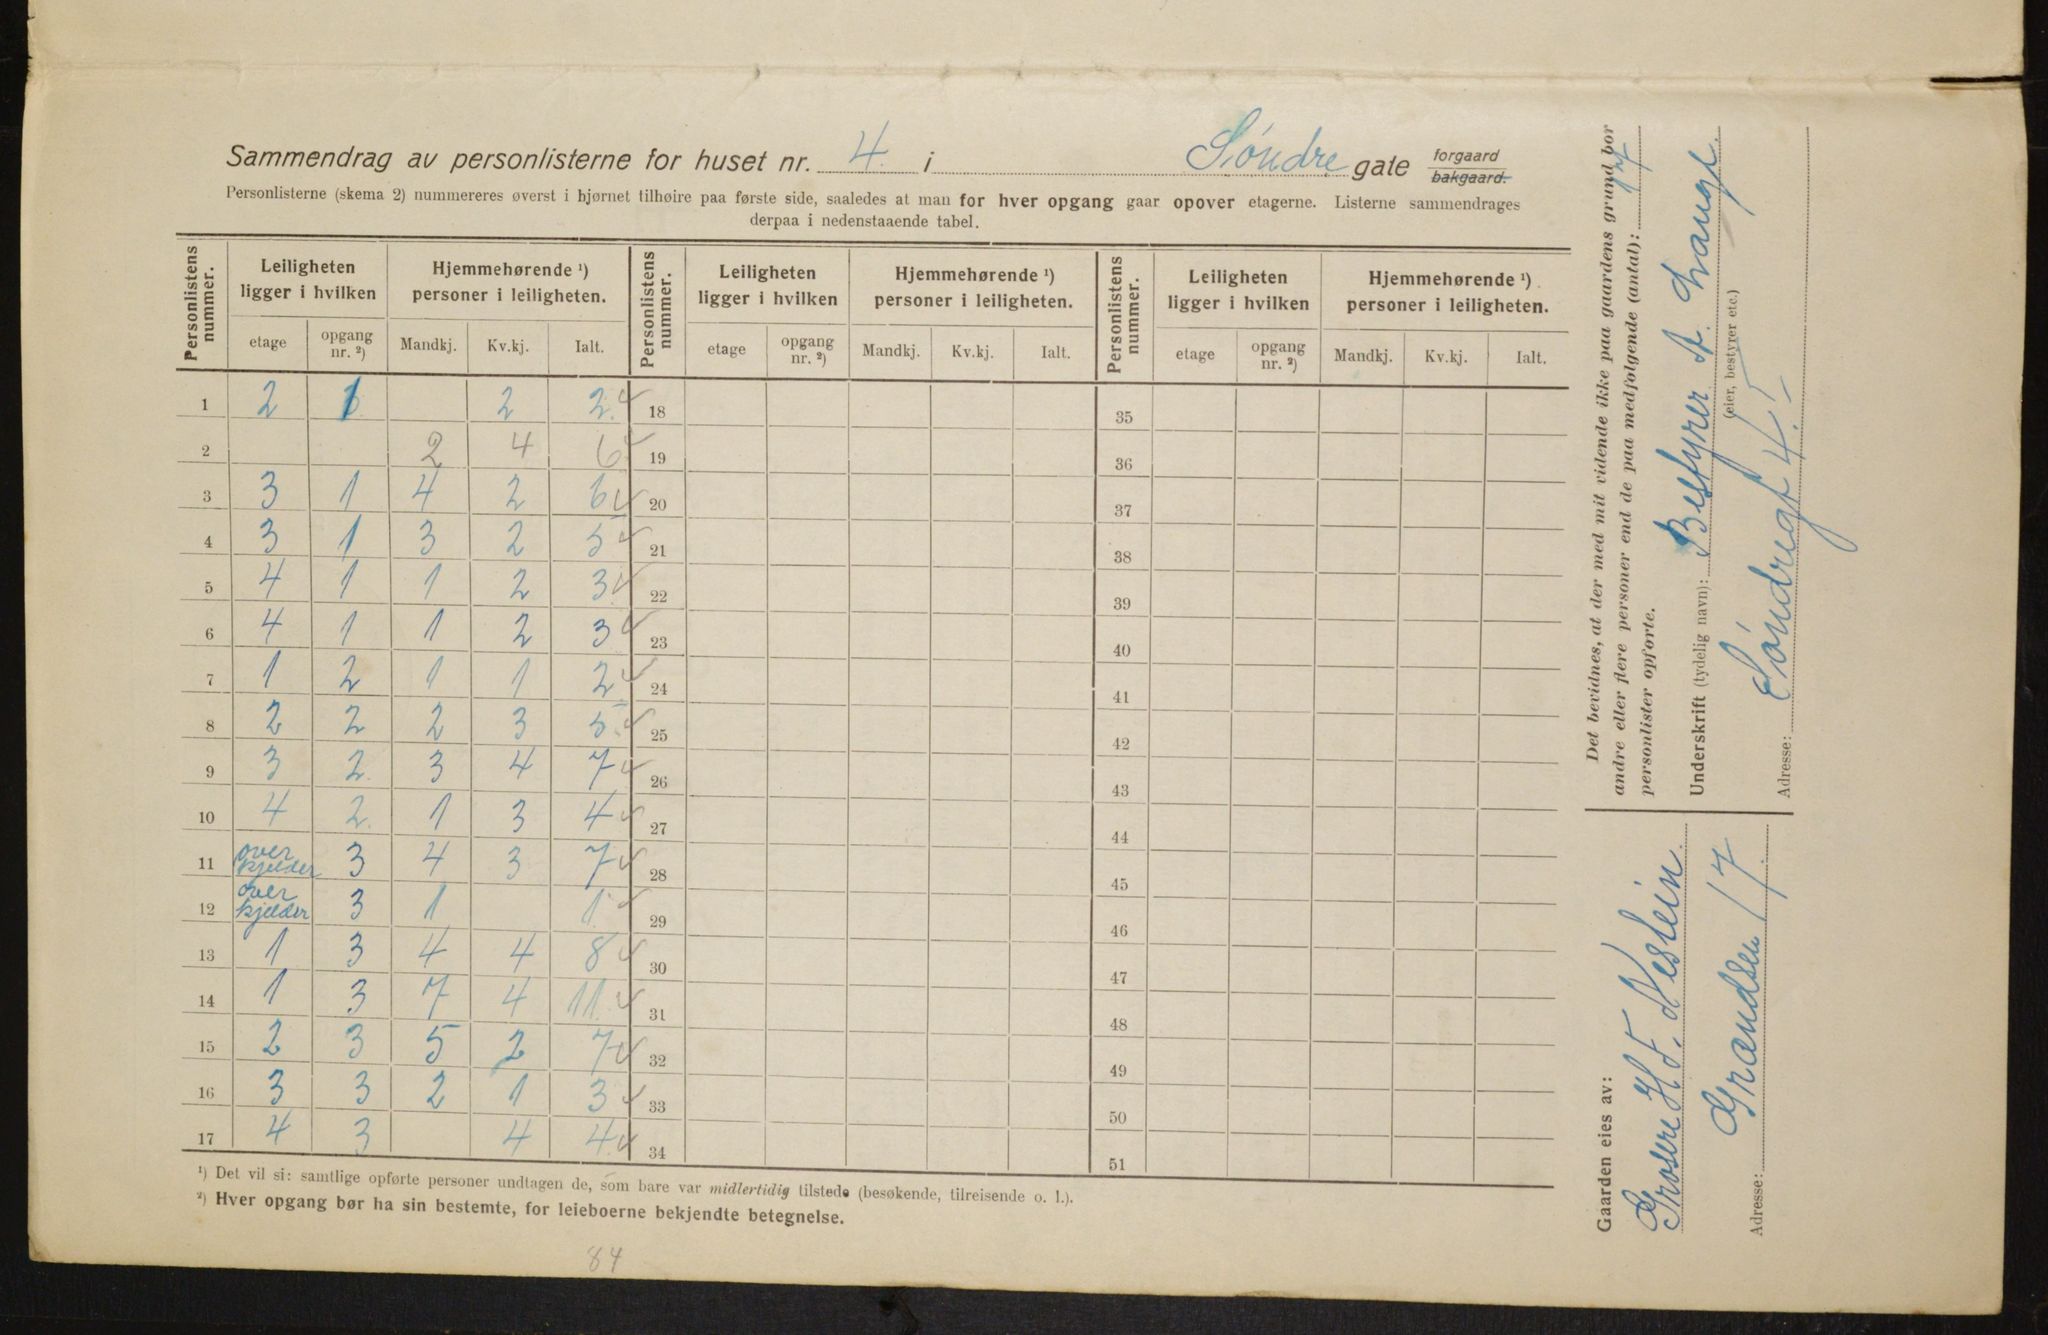 Sammendrag av personlisterne for huset nr. 4. i Söndre gate forgaard bakgaard.
Personlisterne (skema 2) nummereres øverst i hjørnet tilhøire paa første side, saaledes at man for hver opgang gaar opover etagerne. Listerne sammendrages
derpaa i nedenstaaende tabel.
Personlistens nummer. Leiligheten ligger i hvilken Hjemmehørende ¹) personer i leiligheten. Personlistens nummer. Leiligheten ligger i hvilken Hjemmehørende ¹) personer i leiligheten. Personlistens nummer. Leiligheten ligger i hvilken Hjemmehørende ¹) personer i leiligheten.
etage opgang nr. ²) Mandkj. Kv.kj. Ialt. etage opgang nr. ²) Mandkj. Kv.kj. Ialt. etage opgang nr. ²) Mandkj. Kv.kj. Ialt.
1 2 1 2 2. 18 35
2 2 4 6 19 36
3 3 1 4 2 6 20 37
4 3 1 3 2 5 21 38
5 4 1 1 2 3 22 39
6 4 1 1 2 3 23 40
7 1 2 1 1 2 24 41
8 2 2 2 3 5. 25 42
9 3 2. 3 4 7 26 43
10 4 2. 1 3 4 27 44
11 over kjelder 3 4 3 7 28 45
12 over kjelder 3 1 1. 29 46
13 1 3 4 4 8 30 47
14 1 3 7 4 11. 31 48
15 2 3 5 2 7 32 49
16 3 3 2 1 3 33 50
17 4 3 4 4. 34 51
¹) Det vil si: samtlige opførte personer undtagen de, som bare var midlertidig tilstede (besøkende, tilreisende o. l.).
²) Hver opgang bør ha sin bestemte, for leieboerne bekjendte betegnelse.
84
Det bevidnes, at der med mit vidende ikke paa gaardens grund bor
andre eller flere personer end de paa medfølgende (antal): 17
personlister opførte.
Underskrift (tydelig navn): Bestyrer A. Lange.
(eier, bestyrer etc.)
Adresse: Söndregt 4 I
Gaarden eies av:
Grosere H. F. Nestein
Adresse: Grændsen 17.